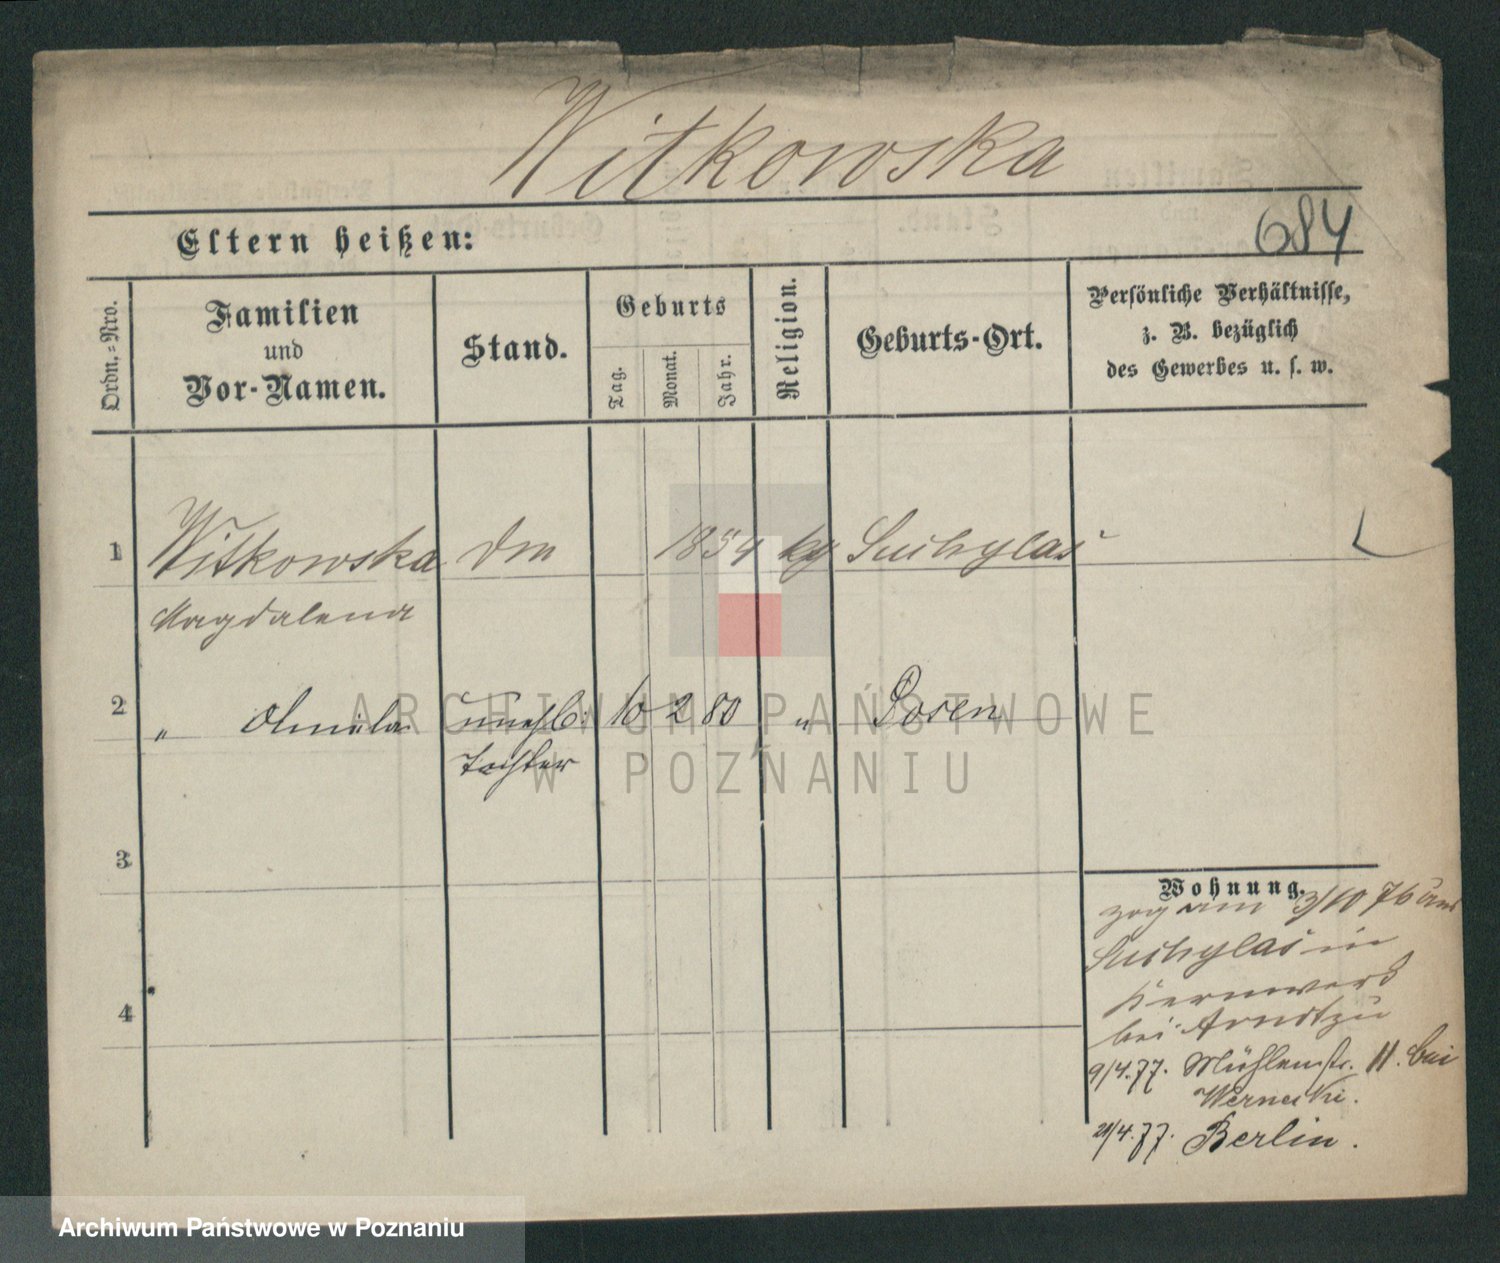 Witkowska
684
Eltern heißen:
Ordn.-Nro.
Familien
und
Vor-Namen.
Stand.
Geburts
Tag.
Monat.
Jahr.
Religion.
Geburts-Ort.
Persönliche Verhältnisse,
z. B. bezüglich
des Gewerbes u. s. w.
1 Witkowska 1854 kg Suchylas
Magdalena
2 " unehl. 10 2 80 " Posen
Tochter
3
4
Wohnung.
zog am 3/10 76 aus
Suchylas in
Kernwerk
bei Arndt zu
9/4.77. Mühlenstr. 11. bei
Wernecki.
21/4.77. Berlin.
ARCHIWUM PAŃSTWOWE
W POZNANIU
Archiwum Państwowe w Poznaniu